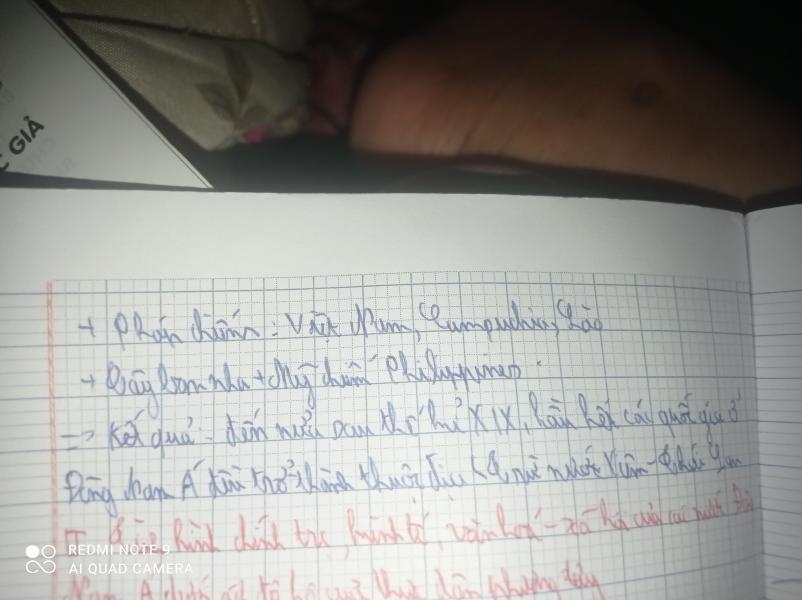 C GIẢ
+ Pháp chiếm: Việt Nam, Campuchia, Lào
+ Tây ban nha + Mỹ chiếm Philippines.
=> Kết quả: đến nửa sau thế kỉ XIX, hầu hết các quốc gia ở
Đông Nam Á đều trở thành thuộc địa (trừ nước Xiêm - Thái Lan
hình chính trị, kinh tế, văn hoá - xã hội của các nước Đông
Nam Á dưới ách đô hộ của thực dân phương tây
REDMI NOTE 9
AI QUAD CAMERA